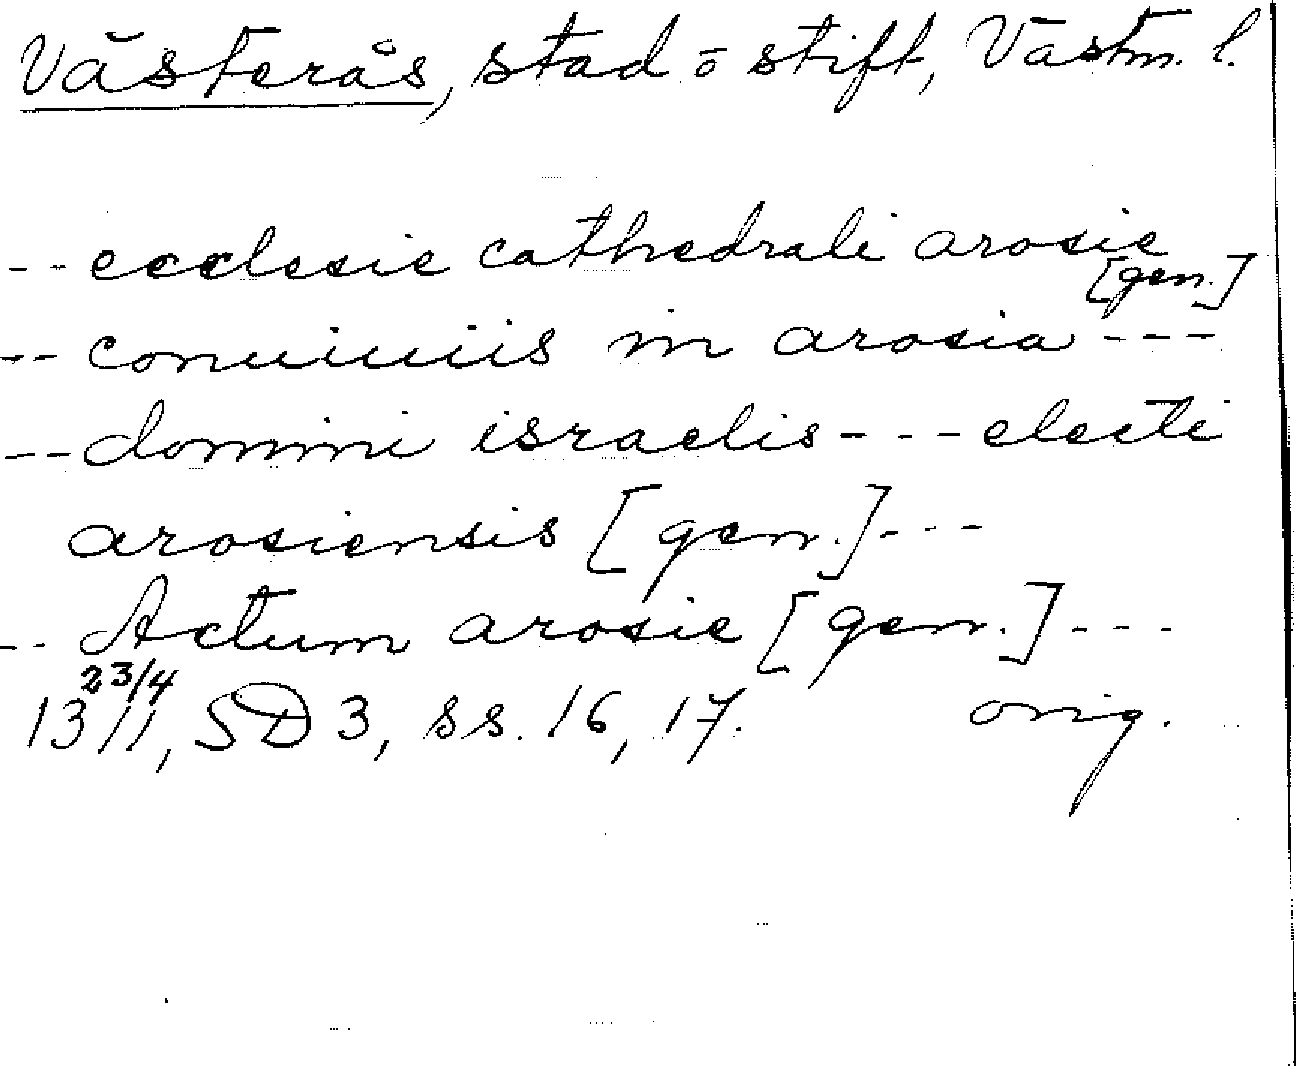 Västerås, stad o stift, Västm. l.
-- ecclesie cathedrali arosie
[gen.]
-- conuiuiis in arosia ---
-- domini israelis --- electi
arosiensis [gen.] ---
-- Actum arosie [gen.] ---
23/4
1311, SD 3, ss. 16, 17. orig.